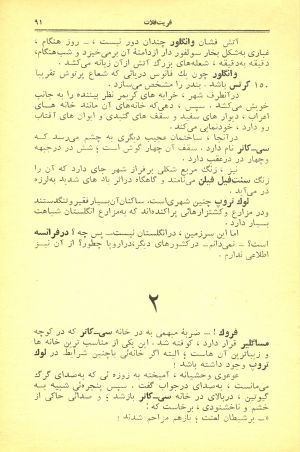 فریت‌فلات
۹۱
آتش فشان وانگلور چندان دور نیست ، ـ روز هنگام ،
غباری به‌شکل بخار سولفور دار ازدهانهٔ آن برمیخیزد و شب‌هنگام،
دقیقه به‌دقیقه ، شعله‌های بزرگ آتش از آن زبانه می‌کشد .
وانگلور چون یك فانوس دریائی که شعاع پرتوش تقریبا
۱۵۰ کرتس باشد. بندر را مشخص می‌سازد .
درآنطرف شهر ، خرابه های کریمر نظر بیننده را به جانب
خویش می‌کشد . سپس ، دهی‌که خانه‌های آن مانند خانه های
اعراب ، دیوار های سفید و سقف های گنبدی و ایوان های آفتاب
رو دارد ، خودنمایی می‌کند .
درآنجا ، ساختمان عجیب دیگری به چشم می‌رسد که
سی‌ـ‌کاتر نام دارد . سقف آن چهار گوش است وشش در درجبهه
وچهار در درعقب دارد .
نیز ، زنگ مربع شکلی برفراز شهر جای دارد که آن را
زنگ سنت‌فیل فیلن می‌نامند و گاهگاه دراثر باد های شدید به‌لرزه
در می‌آید .
لوك تروپ چنین شهری‌است. ساکنان‌آن بسیار فقیرو تنگدستند
ودر مزارع وکشتزارهائی پراکنده‌اند که به‌مزارع انگلستان شباهت
بسیار دارد .
اما این سرزمین ، درانگلستان نیست... پس چه ؟ درفرانسه
است؟ ـ نمیدانم... درکشورهای دیگر،دراروپا چطور؟ از آن نیز
اطلاعی ندارم .
۲
فروك ! ـ ضربهٔ مبهمی به در خانه سی‌ـ‌کاتر که در کوچه
مساگلیر قرار دارد ، کوفته شد . این یکی از مناسب ترین خانه ها
و زیباترین آن هاست ؛ البته اگر خانه‌ئی باچنین شرایط در لوك
تروپ وجود داشته باشد !
عوعوی وحشیانه ، آمیخته به زوزه ئی که به‌صدای گرگ
می‌مانست ، به‌صدای درجواب گفت . سپس پنجره‌ئی شبیه به
گیوتین ، دربالای در خانه سی‌ـ‌کاتر بازشد ؛ و صدائی حاکی از
خشم و ناخشنودی ، برخاست که :
ـ « برشیطان لعنت ؛ بازهم مزاحم شدند !»